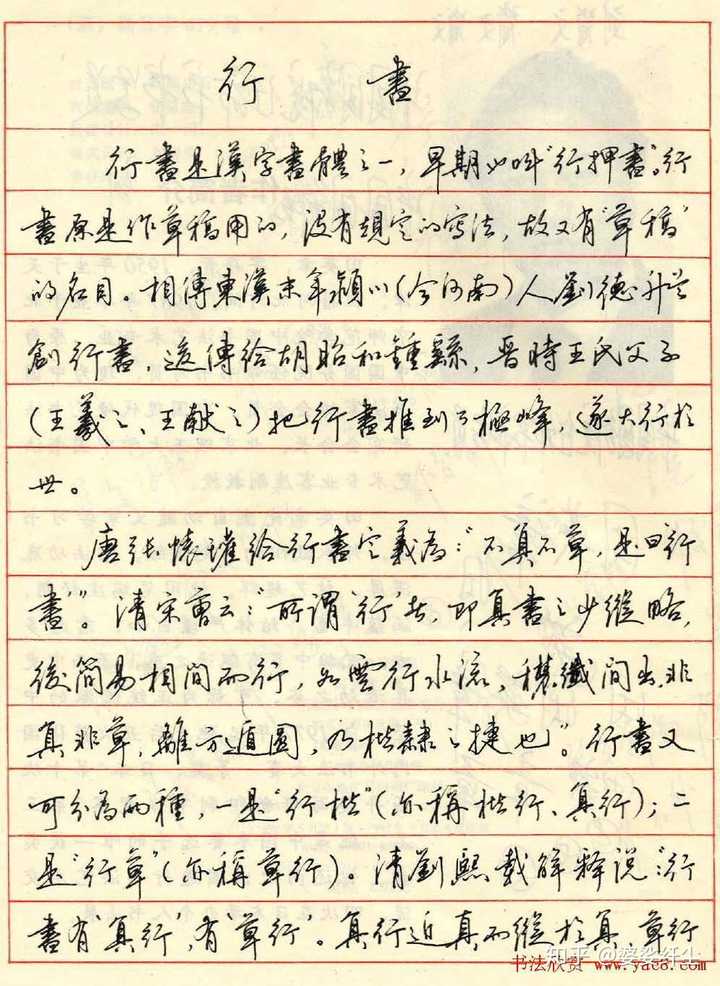 行書
行書是漢字書體之一，早期也叫“行押書”。行
書原是作草稿用的，没有規定的寫法，故又有“草稿”
的名目。相傳東漢末年潁川（今河南）人劉德升首
創行書，後傳給胡昭和鍾繇，晋時王氏父子
（王羲之、王献之）把行書推到了極峰，遂大行於
世。
唐張懷瓘給行書定義為：“不真不草，是曰‘行
書’”。清宋曹云：“所謂‘行’者，即真書之少縱略，
後簡易相間而行，如雲行水流，穠纖間出，非
真非草，離方遁圓，乃楷隸之捷也”。行書又
可分為两種，一是“行楷”（亦稱楷行、真行）；二
是“行草”（亦稱草行）。清劉熙載解释说：“行
書有‘真行’，有‘草行’。真行近真而縱於真，草行
知乎 @婆娑纤尘
书法欣赏 www.yac8.com